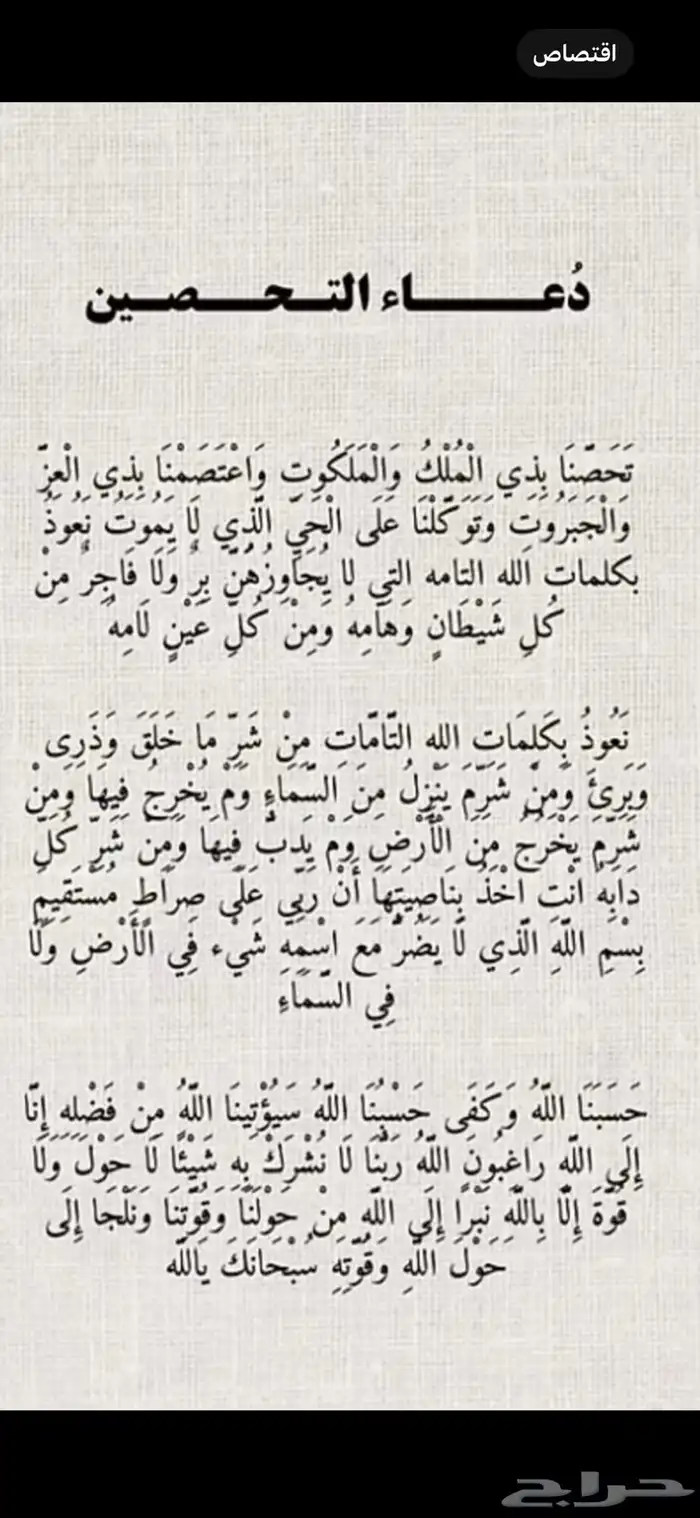 اقتصاص
دُعـــــاء التـحـــصـين
تَحَصّنَا بِذِي الْمُلْكُ وَالْمَلَكُوتِ وَاعْتَصَمْنَا بِذِي الْعِزّ
وَالْجَبَرُوتِ وَتَوَكّلْنَا عَلَى الْحَيّ الّذِي لَا يَمُوتُ نَعُوذُ
بكلمات الله التامه التي لا يُجَاوِزُهُنّ بِرٌ وَلَا فَاجِرٌ مِنْ
كُلِ شَيْطَانٍ وَهَامِهُ وَمِنْ كُلِّ عَيْنٍ لَامِهُ
نَعُوذُ بِكَلِمَاتِ الله التّامّاتِ مِنْ شَرّ مَا خَلَقَ وَذَرِى
وَبَرِئَ وَمِنْ شَرّمَ يَنْزِلُ مِنَ السّمَاءِ وَمْ يُخْرِجُ فِيهَا وَمِنْ
شَرّمَ يَخْرُجُ مِنَ الْأَرْضِ وَمْ يَدبّ فِيهَا وَمِنْ شَرّ كُلّ
دَابِهُ انْتِ اخْذُ بِنَاصِيَتِهَا أَنْ رَبّي عَلَى صِرَاطٍ مُسْتَقِيمٍ
بِسْمِ اللّهِ الّذِي لَا يَضُرّ مَعَ اسْمِهِ شَيْء فِي الْأَرْضِ وَلَا
فِي السّمَاءِ
حَسَبَنَا اللّهُ وَكَفَى حَسْبُنَا اللّهُ سَيُؤْتِينَا اللّهُ مِنْ فَضْلِهِ إِنّا
إِلَى اللّهِ رَاغِبُونَ اللّهُ رَبّنَا لَا نُشْرِكْ بِهِ شَيْئًا لَا حَوْلَ وَلَا
قُوّةَ إِلّا بِاللّهِ نَبْرَا إِلَى اللّهِ مِنْ حَوْلَنَا وَقُوّتِنَا وَنَلْجَا إِلَى
حَوْلَ اللّهِ وَقُوّتِهِ سُبْحَانَكَ يَاللّه
حراج